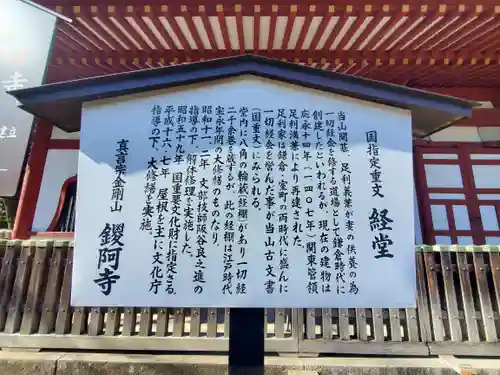 国指定重文
経堂
当山開基、足利義兼が妻の供養の為
一切経を修する道場として鎌倉時代に
創建したといわれるが、現在の建物は
応永十四年(一四〇七年)関東管領
足利満兼により再建された。
足利家は鎌倉・室町の両時代に盛んに
一切経会を営んだ事が当山古文書
(国重文)にみられる。
堂内に八角の輪蔵(経棚)があり一切経
二千余巻を蔵するが、此の経棚は江戸時代
宝永年間の大修繕のものなり。
昭和十一二年、文部技師阪谷良之進の
指導の下、解体修理を実施。
昭和五十九年、国重要文化財に指定さる。
平成十六〜七年、屋根を主に文化庁
指導の下、大修繕を実施。
真言宗金剛山
鑁阿寺
寺
建立